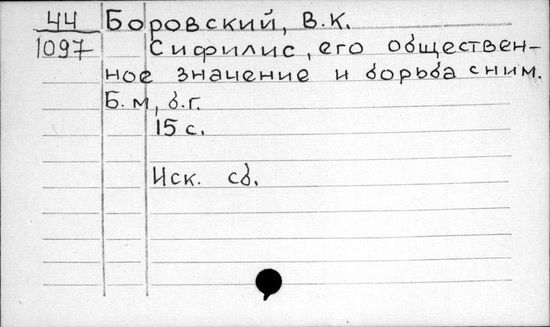 44 Боровский, В.К.
1097 Сифилис, его обществен-
ное значение и борьба с ним.
Б.м, б.г.
15 с.
Иск. сб.